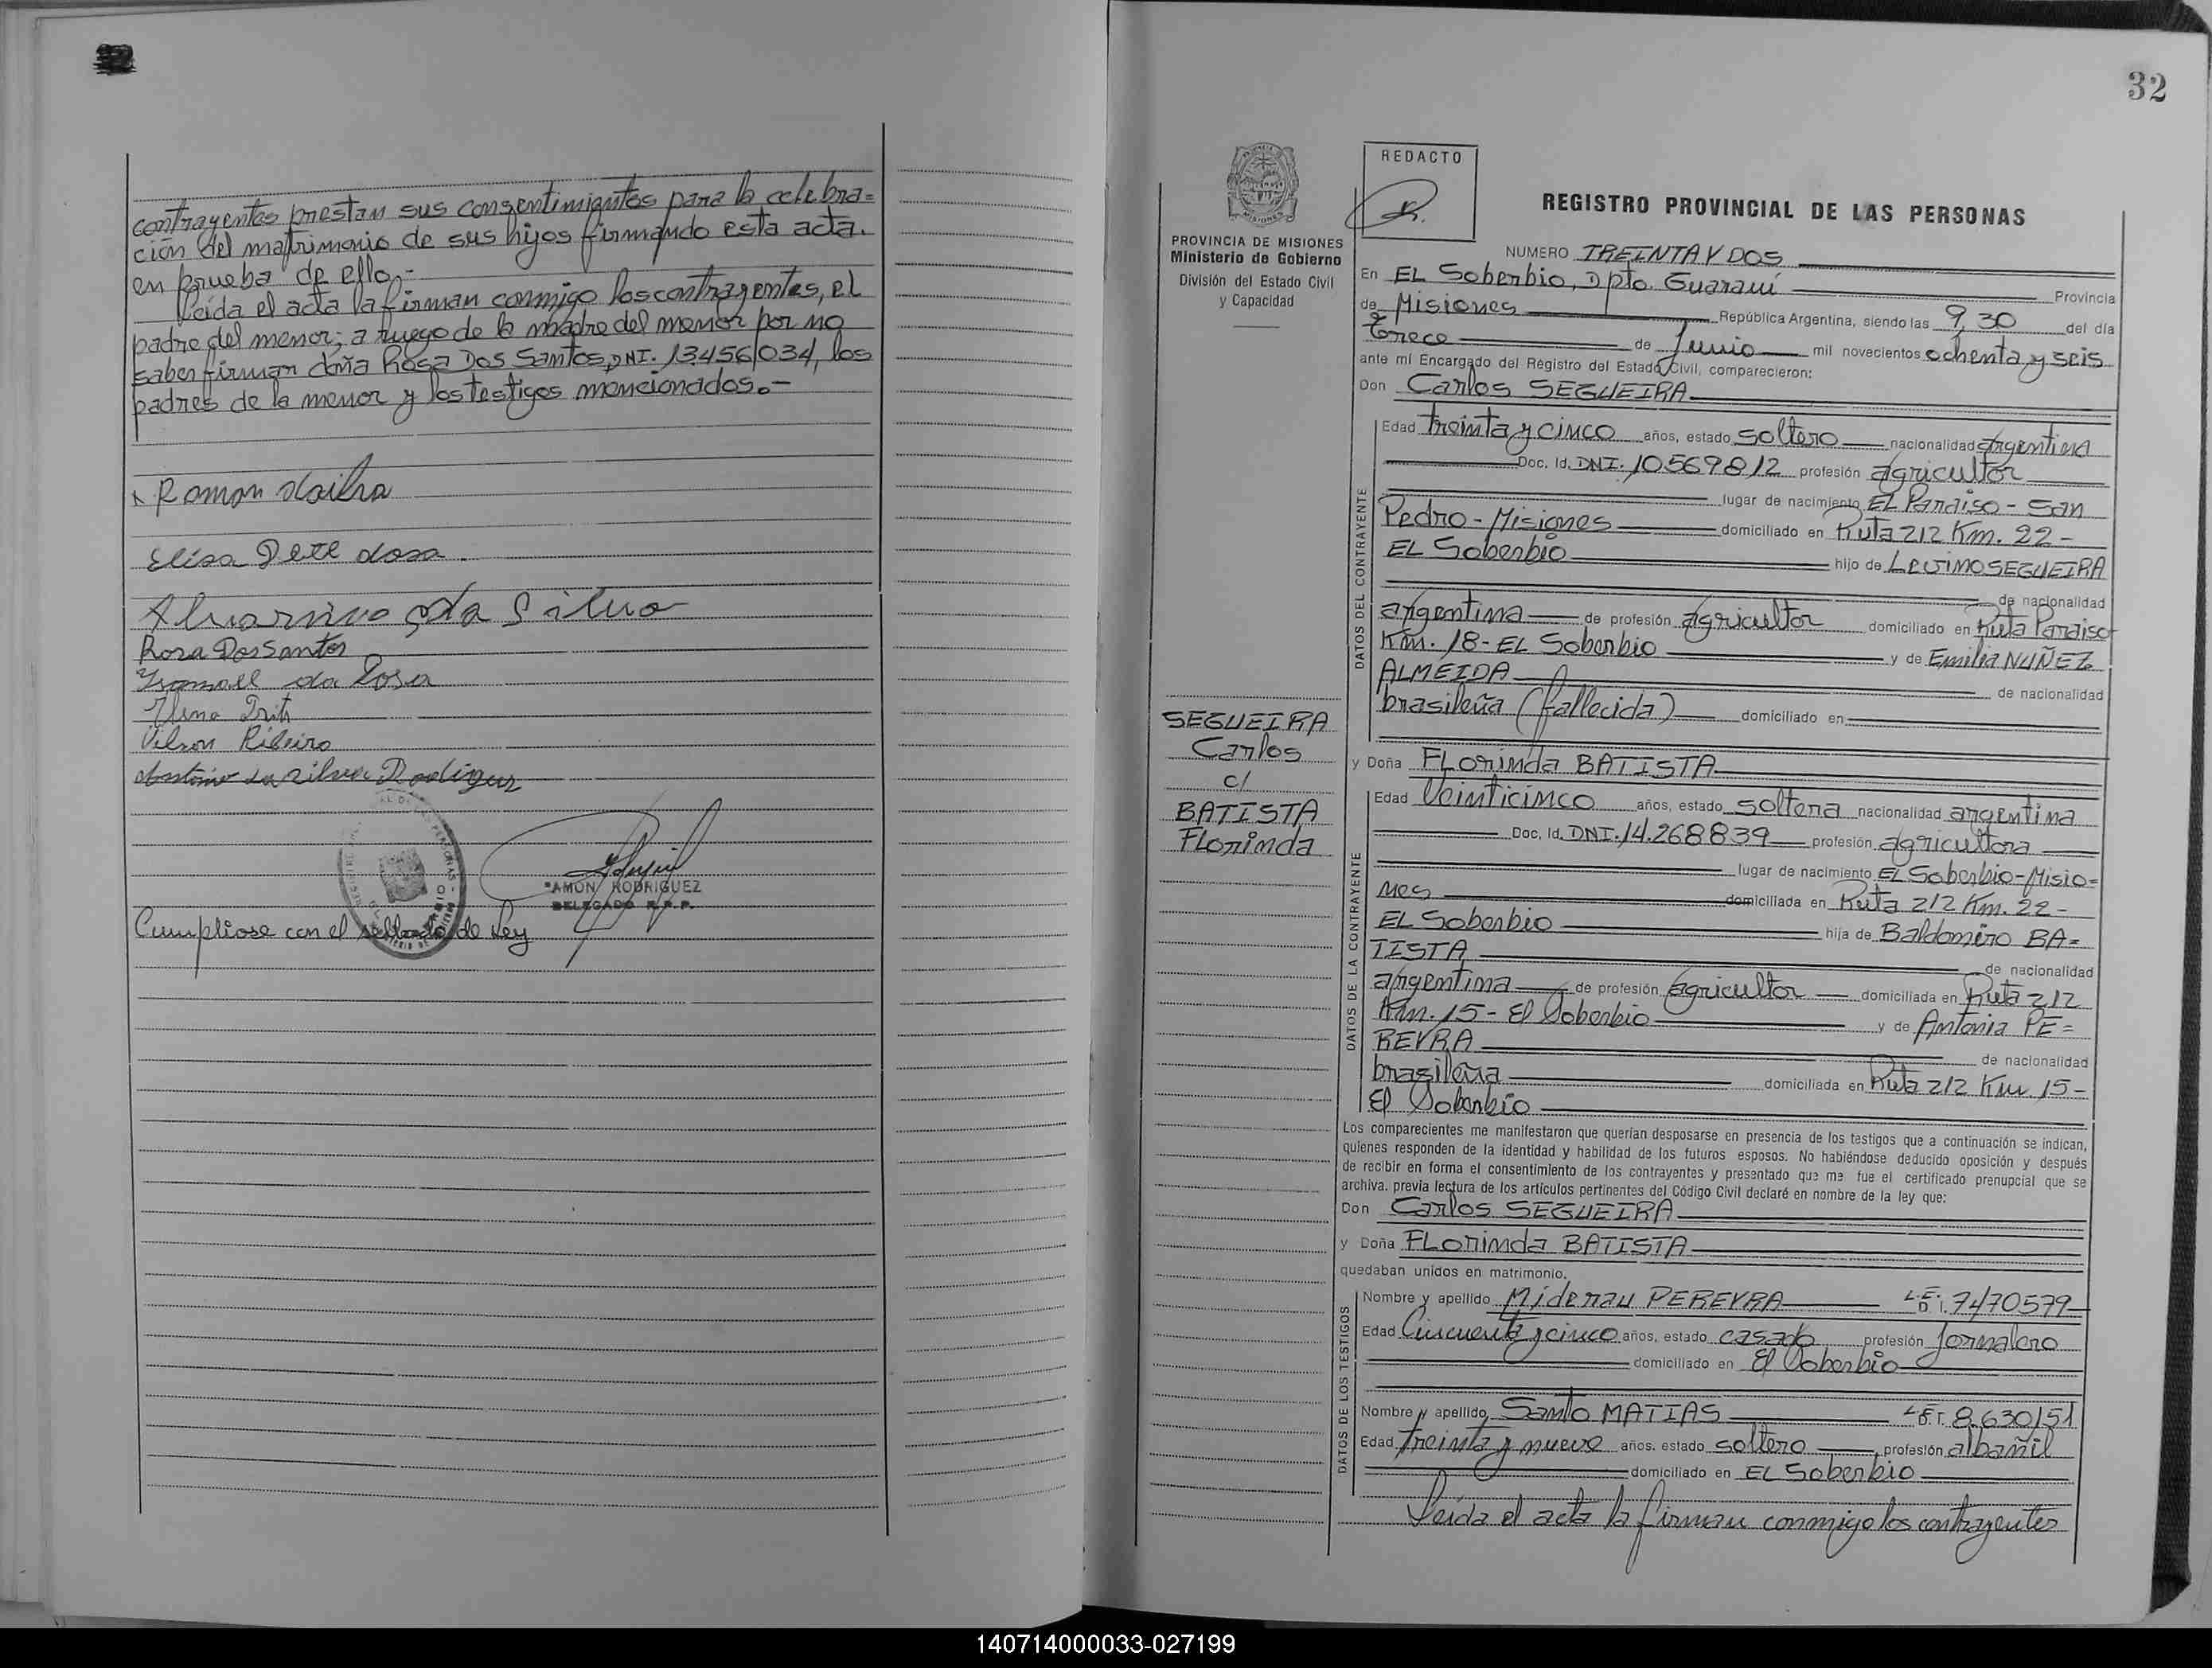 contrayentes prestan sus consentimientos para la celebra=
ción del matrimonio de sus hijos firmando esta acta.
en prueba de ello.-
Leída el acta la firman conmigo los contrayentes, el
padre del menor; a ruego de la madre del menor por no
saber firmar doña Rosa Dos Santos, DNI. 13.456.034, los
padres de la menor y los testigos mencionados.-
Roman
Elisa
da Silva
Rosa Dos Santos
da Rosa
Vilson Ribeiro
da Silva
RAMON RODRIGUEZ
DELEGADO R.P.P.
Cumpliose con el sellado de Ley
32
PROVINCIA DE MISIONES
Ministerio de Gobierno
División del Estado Civil
y Capacidad
SEGUEIRA
Carlos
c/
BATISTA
Florinda
REDACTO
REGISTRO PROVINCIAL DE LAS PERSONAS
NUMERO TREINTA Y DOS
En EL Soberbio, Dpto. Guaraní Provincia
de Misiones República Argentina, siendo las 9,30 del día
trece de Junio mil novecientos ochenta y seis
ante mí Encargado del Registro del Estado Civil, comparecieron:
Don Carlos SEGUEIRA
DATOS DEL CONTRAYENTE
Edad treinta y cinco años, estado soltero nacionalidad argentina
Doc. Id. DNI. 10569812 profesión agricultor
lugar de nacimiento EL Paraiso - San
Pedro - Misiones domiciliado en Ruta 212 Km. 22 -
EL Soberbio hijo de Levino SEGUEIRA
de nacionalidad
argentina de profesión agricultor domiciliado en Ruta Paraiso
Km. 18 - EL Soberbio y de Emilia NUÑEZ
ALMEIDA de nacionalidad
brasileña (fallecida) domiciliado en
y Doña FLorinda BATISTA
DATOS DE LA CONTRAYENTE
Edad Veinticinco años, estado soltera nacionalidad argentina
Doc. Id. DNI. 14.268839 profesión agricultora
lugar de nacimiento EL Soberbio - Misio=
nes domiciliada en Ruta 212 Km. 22 -
EL Soberbio hija de Baldomero BA=
TISTA de nacionalidad
argentina de profesión agricultor domiciliada en Ruta 212
Km. 15 - El Soberbio y de Antonia PE=
REYRA de nacionalidad
brasileña domiciliada en Ruta 212 Km. 15 -
El Soberbio
Los comparecientes me manifestaron que querían desposarse en presencia de los testigos que a continuación se indican,
quienes responden de la identidad y habilidad de los futuros esposos. No habiéndose deducido oposición y después
de recibir en forma el consentimiento de los contrayentes y presentado que me fue el certificado prenupcial que se
archiva. previa lectura de los artículos pertinentes del Código Civil declaré en nombre de la ley que:
Don Carlos SEGUEIRA
y Doña FLorinda BATISTA
quedaban unidos en matrimonio.
DATOS DE LOS TESTIGOS
Nombre y apellido Midenau PEREYRA L.E. D.I. 7470579
Edad Cincuenta y cinco años, estado casado profesión Jornalero
domiciliado en El Soberbio
Nombre y apellido Santo MATIAS L.E. D.I. 8.630151
Edad treinta y nueve años. estado soltero profesión albañil
domiciliado en EL Soberbio
Leída el acta la firman conmigo los contrayentes
140714000033-027199